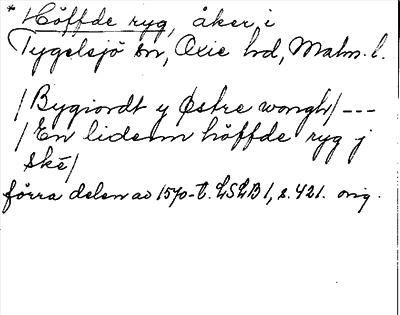 * Höffde ryg, åker i
Tygelsjö sn, Oxie hd, Malm. l.
/Bygiordt y Østre wongh/ ---
/En lidenn höffde ryg j
ské/
förra delen av 1570-t. LSLB 1, s. 421. orig.